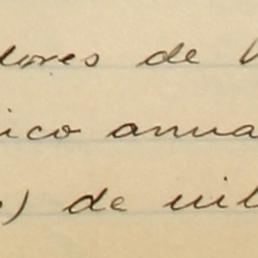 dores de
ico anua
) de nil